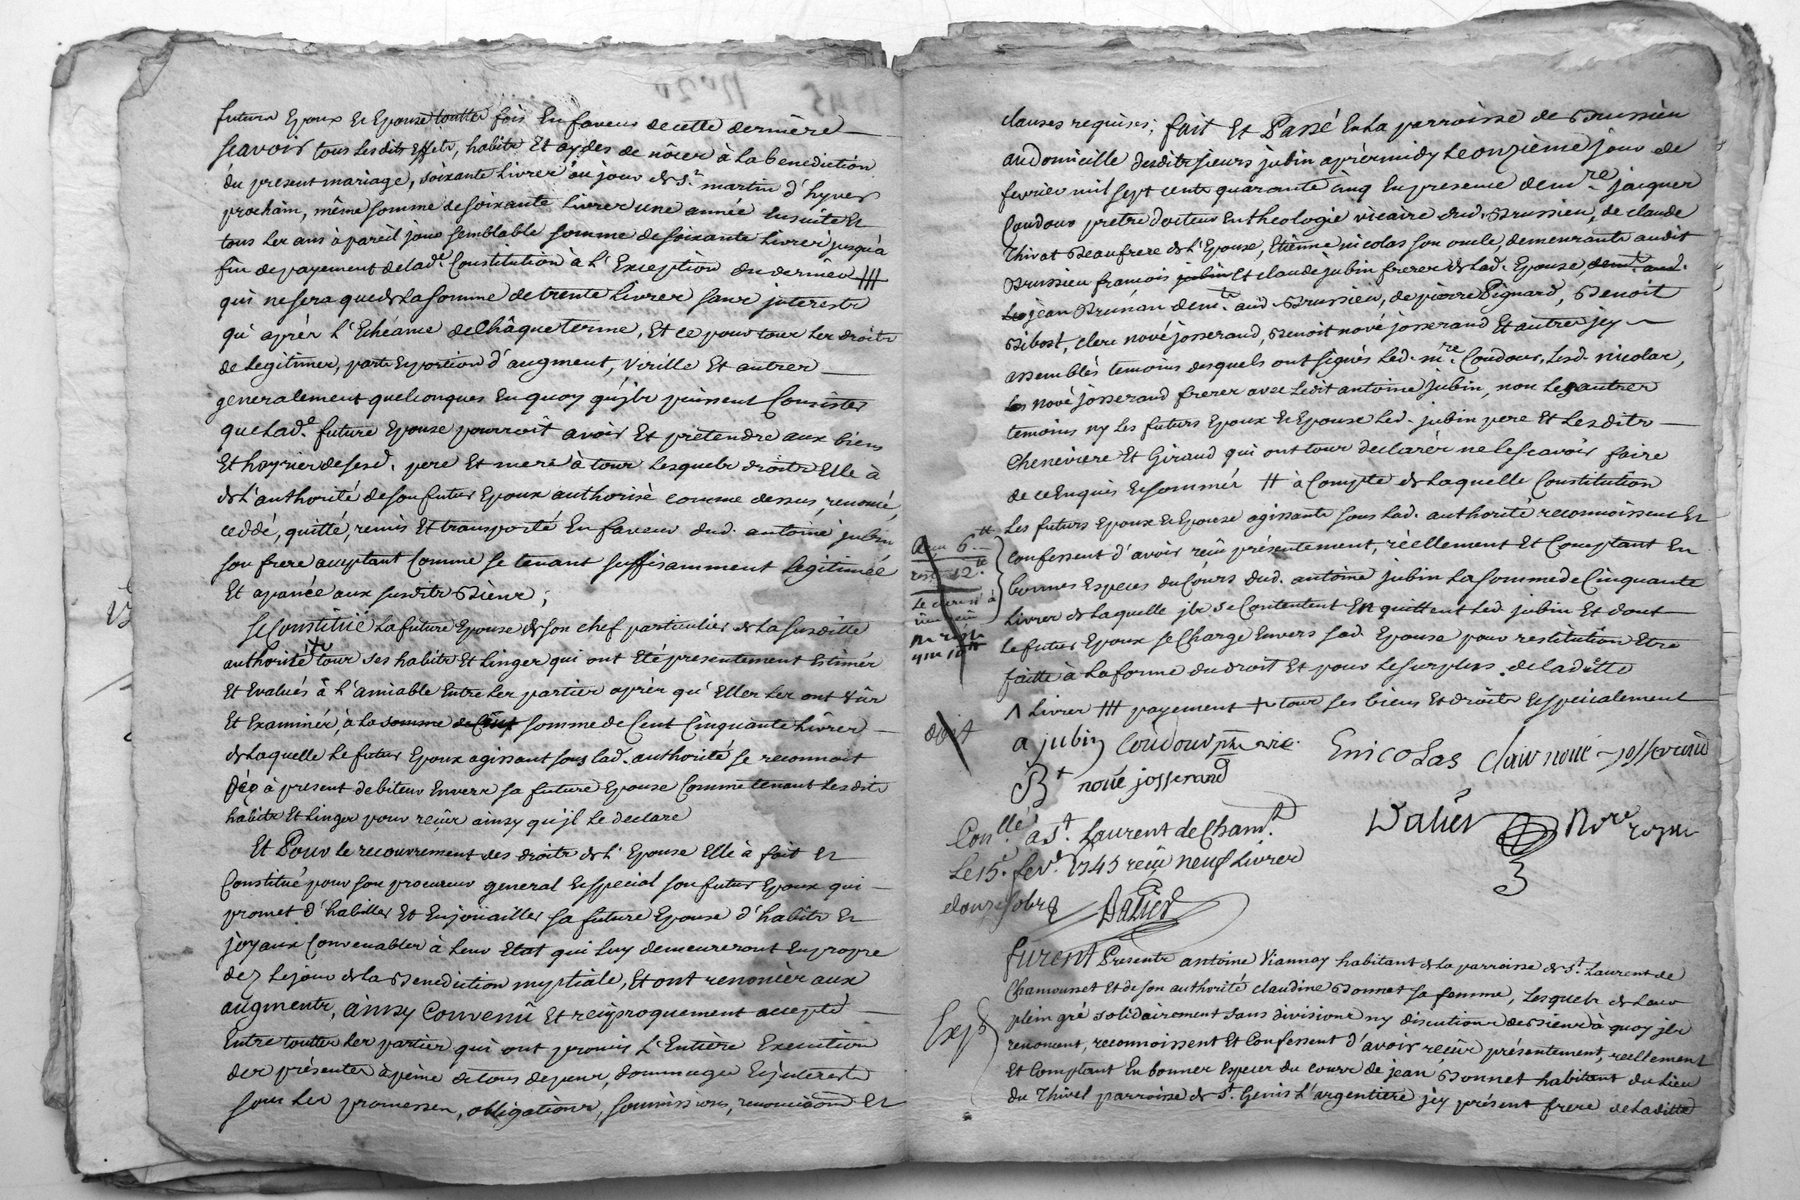 futurs Epoux Et Epouse toutte fois En faveur de cette dernière
scavoir tous Lesdits Effets, habits Et aydes de nôces à La benediction
du present mariage, soixante Livres au jour de St. martin d'hyver
prochain, même somme de soixante Livres une année Ensuite Et
tous Les ans à pareil jour semblable somme de soixante Livres jusqu'a
fin de payement de lade. Constitution à L'Exception du dernier ///
qui ne sera que de La somme de trente Livres sans interests
qu'après L'Echéance de châque terme, Et ce pour tous Les droits
de Legitimes, part Et portion d'augment, virille Et autres
generalement quelconques En quoy qu'jls puissent Consister
que Lade. future Epouse pourroit avoir Et prétendre aux biens
Et hoyries de sesd. pere Et mere à tous Lesquels droits Elle à
de L'authorité de son futur Epoux authorisé comme dessus, renoncé,
ceddé, quitté, remis Et transporté En faveur dud. antoine jubin
son frere acceptant Comme se tenant suffisamment Legitimée
Et apanée aux susdits Biens;
Se Constitüe La future Epouse de son chef particulier de La susditte
authorité + tous ses habits Et Linges qui ont Eté presentement Estimés
Et Evalués à L'amiable Entre Les parties après qu'Elles Les ont vûs
Et Examinés, à La somme de Cent somme de Cent Cinquante Livres
de Laquelle Le futur Epoux agissant sous Lad. authorité se reconnoit
déz à present debiteur Envers sa future Epouse Comme tenant Lesdits
habits Et Linges pour reçus ainsy qu'jl Le declare
Et Pour le recouvrement des droits de L'Epouse Elle à fait Et
Constitué pour son procureur general Et special son futur Epoux qui
promet d'habiller Et Enjoüailler sa future Epouse d'habits Et
joyaux Convenables à Leur Etat qui Luy demeureront En propre
dez Le jour de La Benediction nuptiale, Et ont renoncés aux
augments, ainsy Convenû Et reciproquement accepté
Entre touttes Les parties qui ont promis L'Entière Execution
des présentes à peine de tous depens, dommages Et interests
sous Les promesses, obligations, soumissions, renonciations Et
clauses requises; fait Et Passé En La parroisse de Brussieu
au domicille desdits sieurs jubin après midy Le onzième jour de
fevrier mil sept cents quarante cinq En presence de mre. jacques
Coudour prêtre docteur En theologie vicaire dud. Brussieu, de claude
Thivat Beaufrere de L'Epouse, Etienne nicolas son oncle demeurants audit
Brussieu françois jubin Et claude jubin freres de Lad. Epouse demt. aud.
jean Brunan demt. aud. Brussieu, de pierre Pignard, Benoit
Bibost, clere nové josserand, Benoit nové josserand Et autres jcy
assemblés temoins desquels ont signés Led. mre. Coudour, Lesd. nicolas,
Les nové josserand freres avec Ledit antoine jubin, non Les autres
temoins ny Les futurs Epoux Et Epouse Led. jubin pere Et Lesdits
Chenevière Et Giraud qui ont tous declarés ne Le scavoir faire
de ce Enquis Et sommés # à Compte de Laquelle Constitution
Les futurs Epoux Et Epouse agissants sous Lad. authorité reconnoissent Et
Confessent d'avoir reçû présentement, réellement Et Comptant En
bonnes Especes du Cours dud. antoine jubin La somme de Cinquante
Livres de Laquelle jls se Contentent En quittent Led. jubin Et dont
Le futur Epoux se Charge Envers sad. Epouse pour restitution Etre
faitte à La forme du droit Et pour Le surplus de Laditte
Λ Livres /// payement + tous ses biens Et droits Especialement
doit
a jubin Coudour ptre vic. Enicolas clair noué josserand
Bt noüé josserand
Dalier Nore royal
Conllé. a St. Laurent de Chamt.
Le 15e. fevr. 1745 reçû neuf Livres
douze sols
Dalier
Furent Presents antoine Viannay habitant de La parroisse de St. Laurent de
Chamousset Et de son authorité claudine Bonnet sa femme, Lesquels de Leur
plein gré solidairement sans divisions ny discutions des siens à quoy jls
renoncent, reconnoissent Et Confessent d'avoir reçûs présentement, réellement
Et Comptant En bonnes Especes du cours de jean Bonnet habitant du Lieu
du Thivel parroisse de St. Genis L'argentiere jcy présent frere de Laditte
Expé